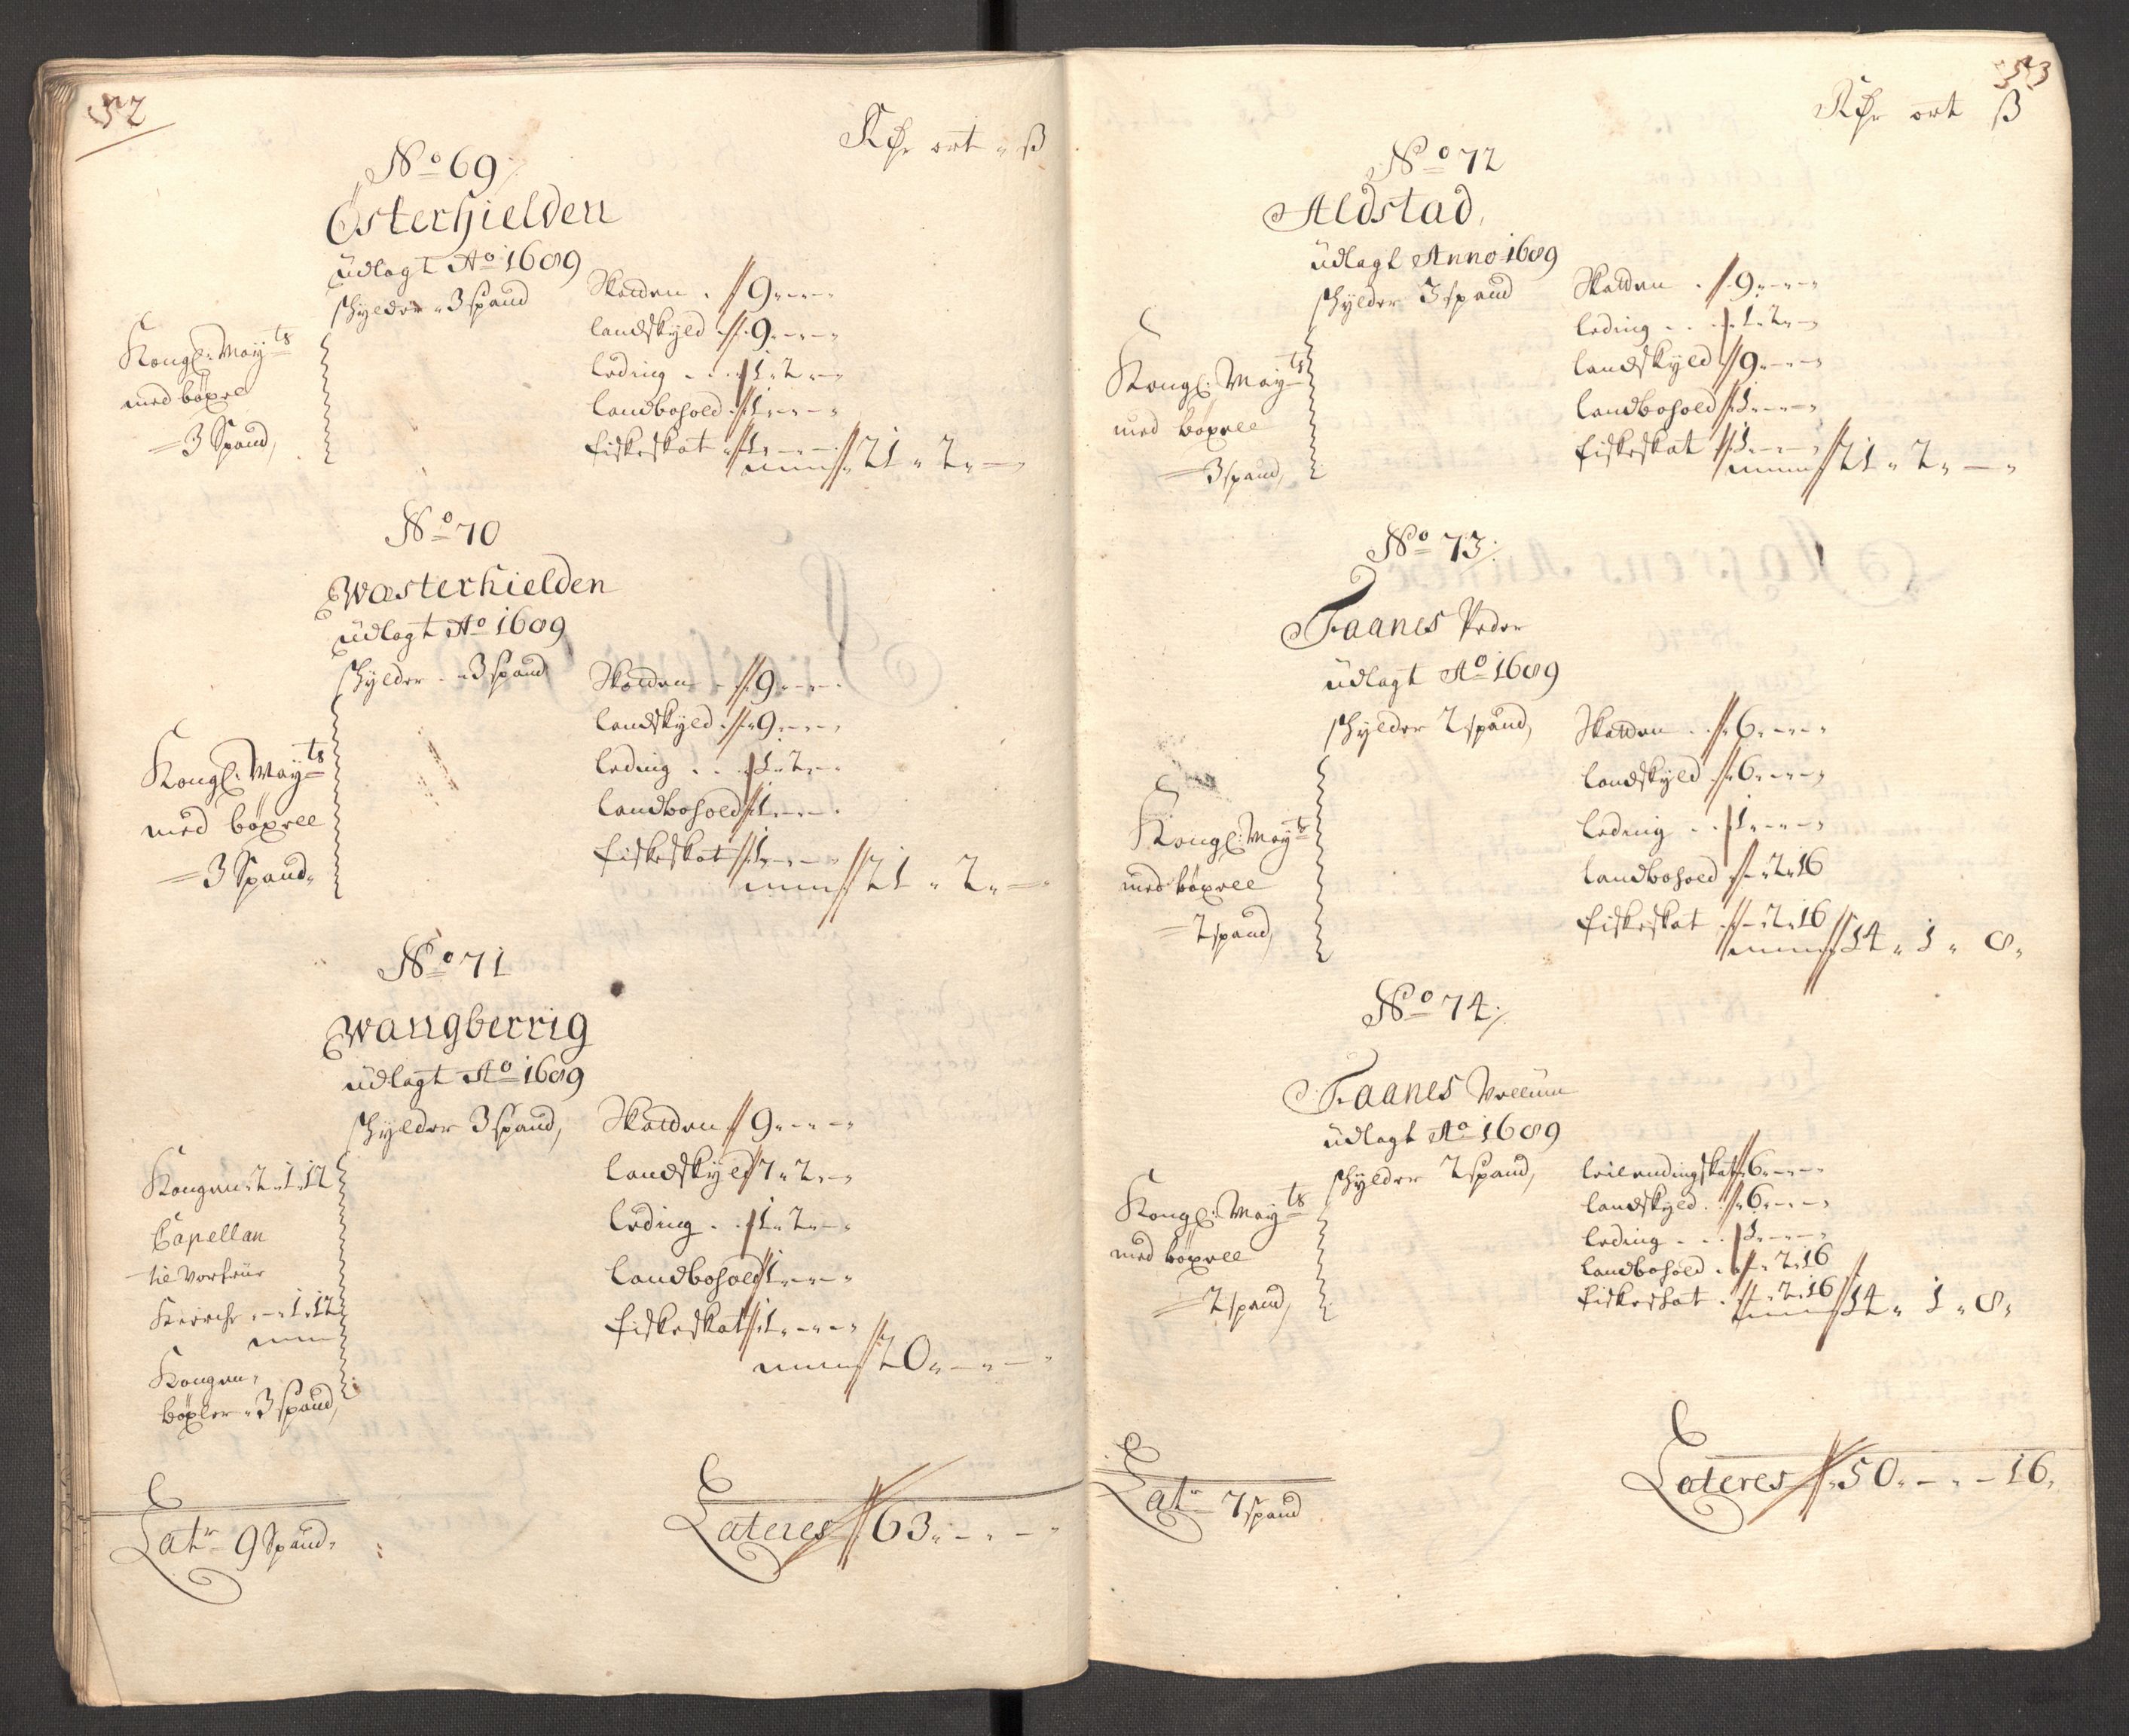 52
Rdr ort ß
No 69
Österhielden
üdlagt Ao 1689
schylder 3 spand
Kongl: Mayts
med böxel
3 Spand
Skatten 9 - -
landskyld 9 - -
leding 1 2 -
landbohold 1 - -
fiskeskat 1 - -
21 2 -
No 70
Wæsterhielden
üdlagt Ao 1689
schylder 3 spand
Kongl. Mayts
med böxell
3 Spand
Skatten 9 - -
landskyld 9 - -
leding 1 2 -
landbohold 1 - -
fiskeskat 1 - -
21 2 -
No 71
Wangberrig
üdlagt Ao 1689
schylder 3 spand
Kongen 2 1 12
Capellan
til Vorfrue
Kierche - 1 12
Kongen
böxler 3 spand
Skatten 9 - -
landskyld 7 2 -
leding 1 2 -
landbohold 1 - -
fiskeskat 1 - -
20 - -
Latr 9 Spand
Lateres 63 - -
53
Rdr ort ß
No 72
Aldstad
üdlagt Anno 1689
schylder 3 spand
Kongl: Mayts
med böxell
3 spand
Skatten 9 - -
leding 1 2 -
landskyld 9 - -
landbohold 1 - -
fiskeskat 1 - -
21 2 -
No 73
Faanes Peder
üdlagt Ao 1689
schylder 2 spand
Kongl: Mayts
med böxell
2 spand
Skatten 6 - -
landskyld 6 - -
leding 1 - -
landbohold - 2 16
fiskeskat - 2 16
14 1 8
No 74
Faanes Vellum
üdlagt Ao 1689
schylder 2 spand
Kongl: Mayts
med böxell
2 spand
leilendingskat 6 - -
landskyld 6 - -
leding 1 - -
landbohold - 2 16
fiskeskat - 2 16
14 1 8
Latr 7 spand
Lateres 50 - 16